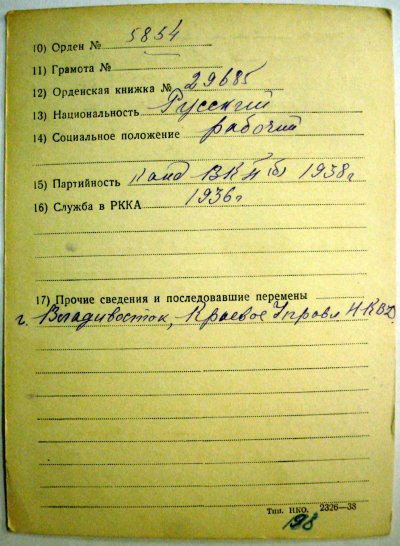 10) Орден № 5854
11) Грамота №
12) Орденская книжка № 29685
13) Национальность Русский
14) Социальное положение рабочий
15) Партийность Канд ВКП(б) 1938 г
16) Служба в РККА 1936 г
17) Прочие сведения и последовавшие перемены
г. Владивосток, Краевое Управл НКВД
Тип. НКО. 2326—38
198